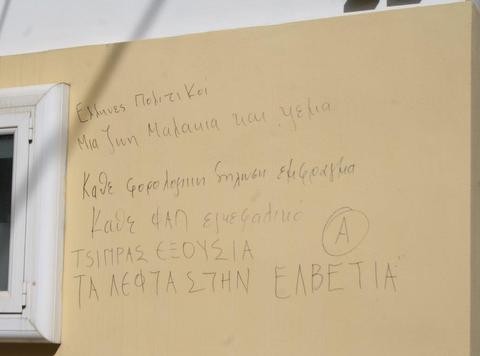 Ελληνες Πολιτικοί
Μια ζωη Μαλακια και ψεμα
Καθε φορολογικη δηλωση εμφραγμα
Καθε ΦΑΠ εγκεφαλικο
Α
ΤSΙΠΡΑΣ ΕΞΟΥΣΙΑ
ΤΑ ΛΕΦΤΑ ΣΤΗΝ ΕΛΒΕΤΙΑ